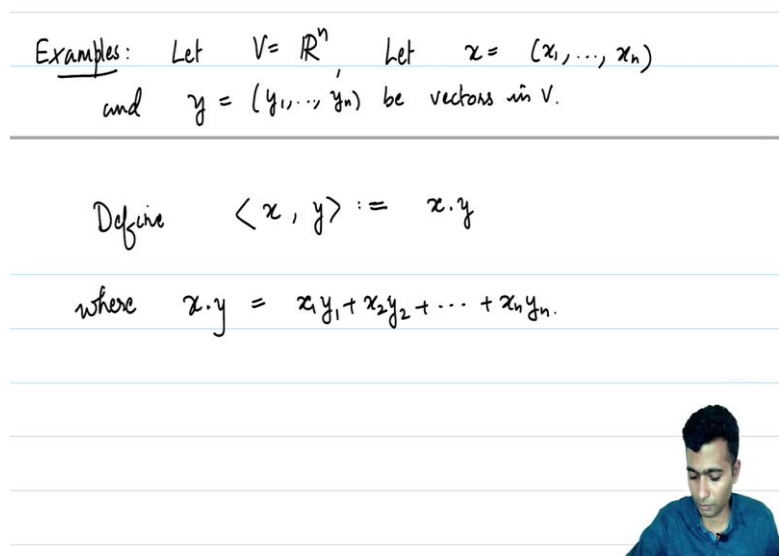 Examples: Let V = ℝⁿ, Let x = (x₁, ..., xₙ)
and y = (y₁, ..., yₙ) be vectors in V.
Define <x, y> := x.y
where x.y = x₁y₁ + x₂y₂ + ... + xₙyₙ.